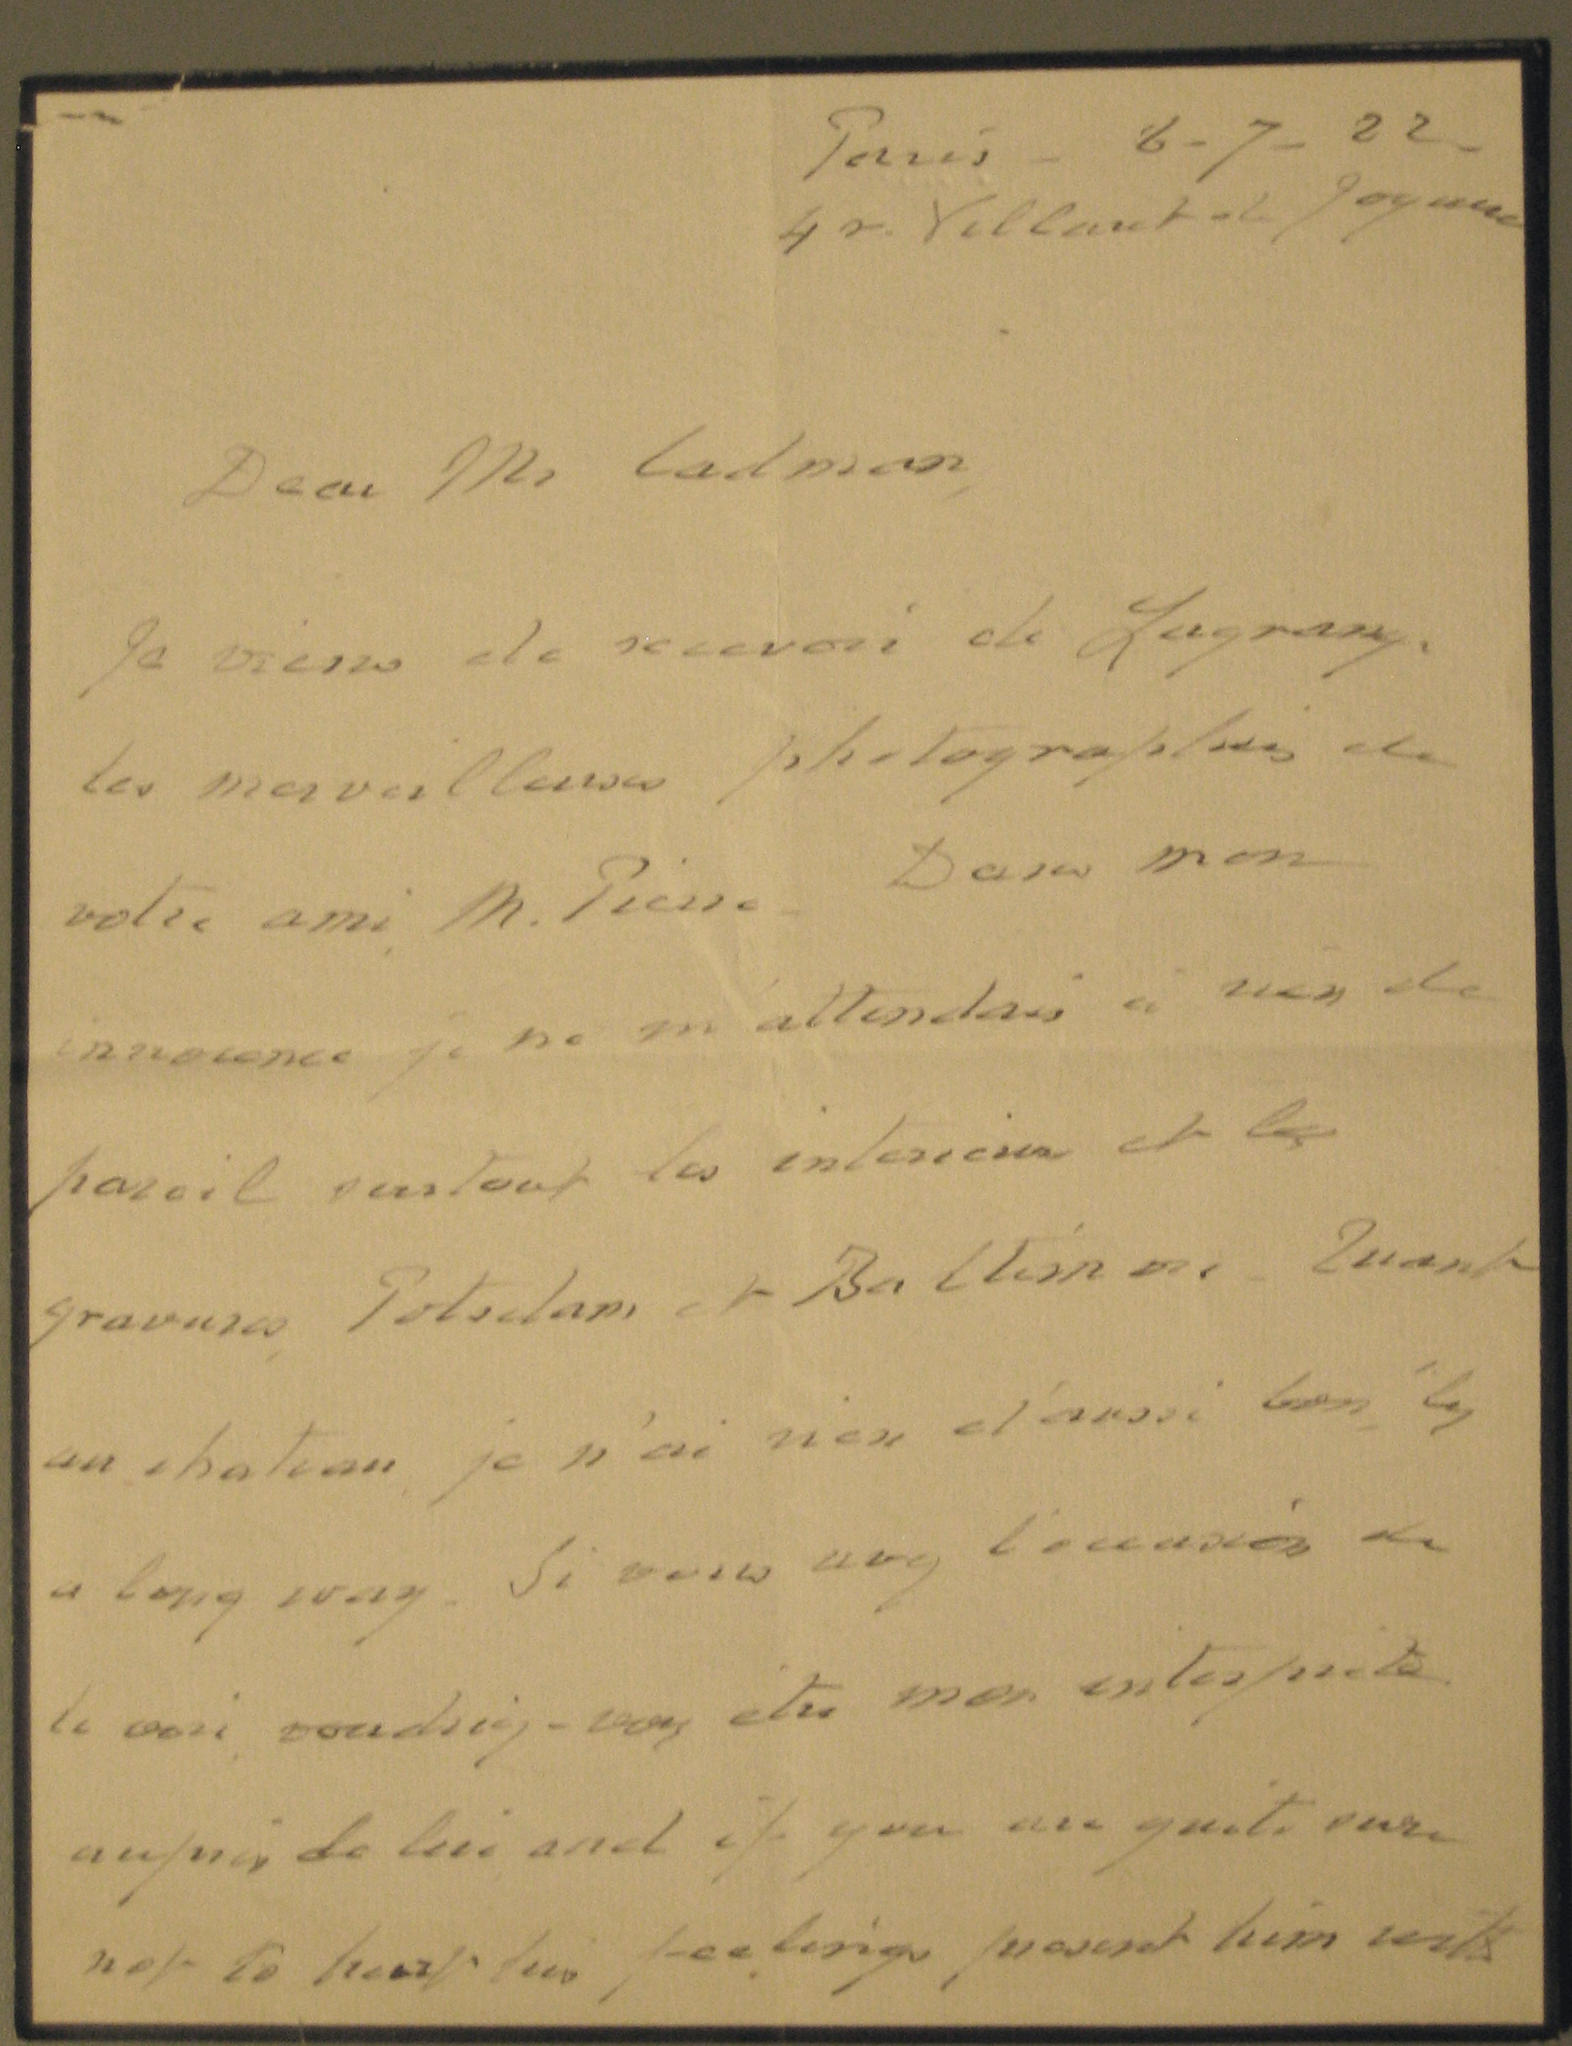 Paris - 8-7-22-
4 r. Villaret de Joyeuse
Dear Mr Cadman,
Je viens de recevoir de Lagrange
les merveilleuses photographies de
votre ami, M. Pierre - Dans mon
innocence je ne m'attendais à rien de
pareil surtout les interieurs et les
gravures, Potsdam et Baltimore - Quant
au chateau, je n'ai rien d'aussi bon, "by
a long way - Si vous avez l'occasion de
le voir, voudriez-vous être mon interprète
auprès de lui and if you are quite sure
not to hurt his feelings present him with